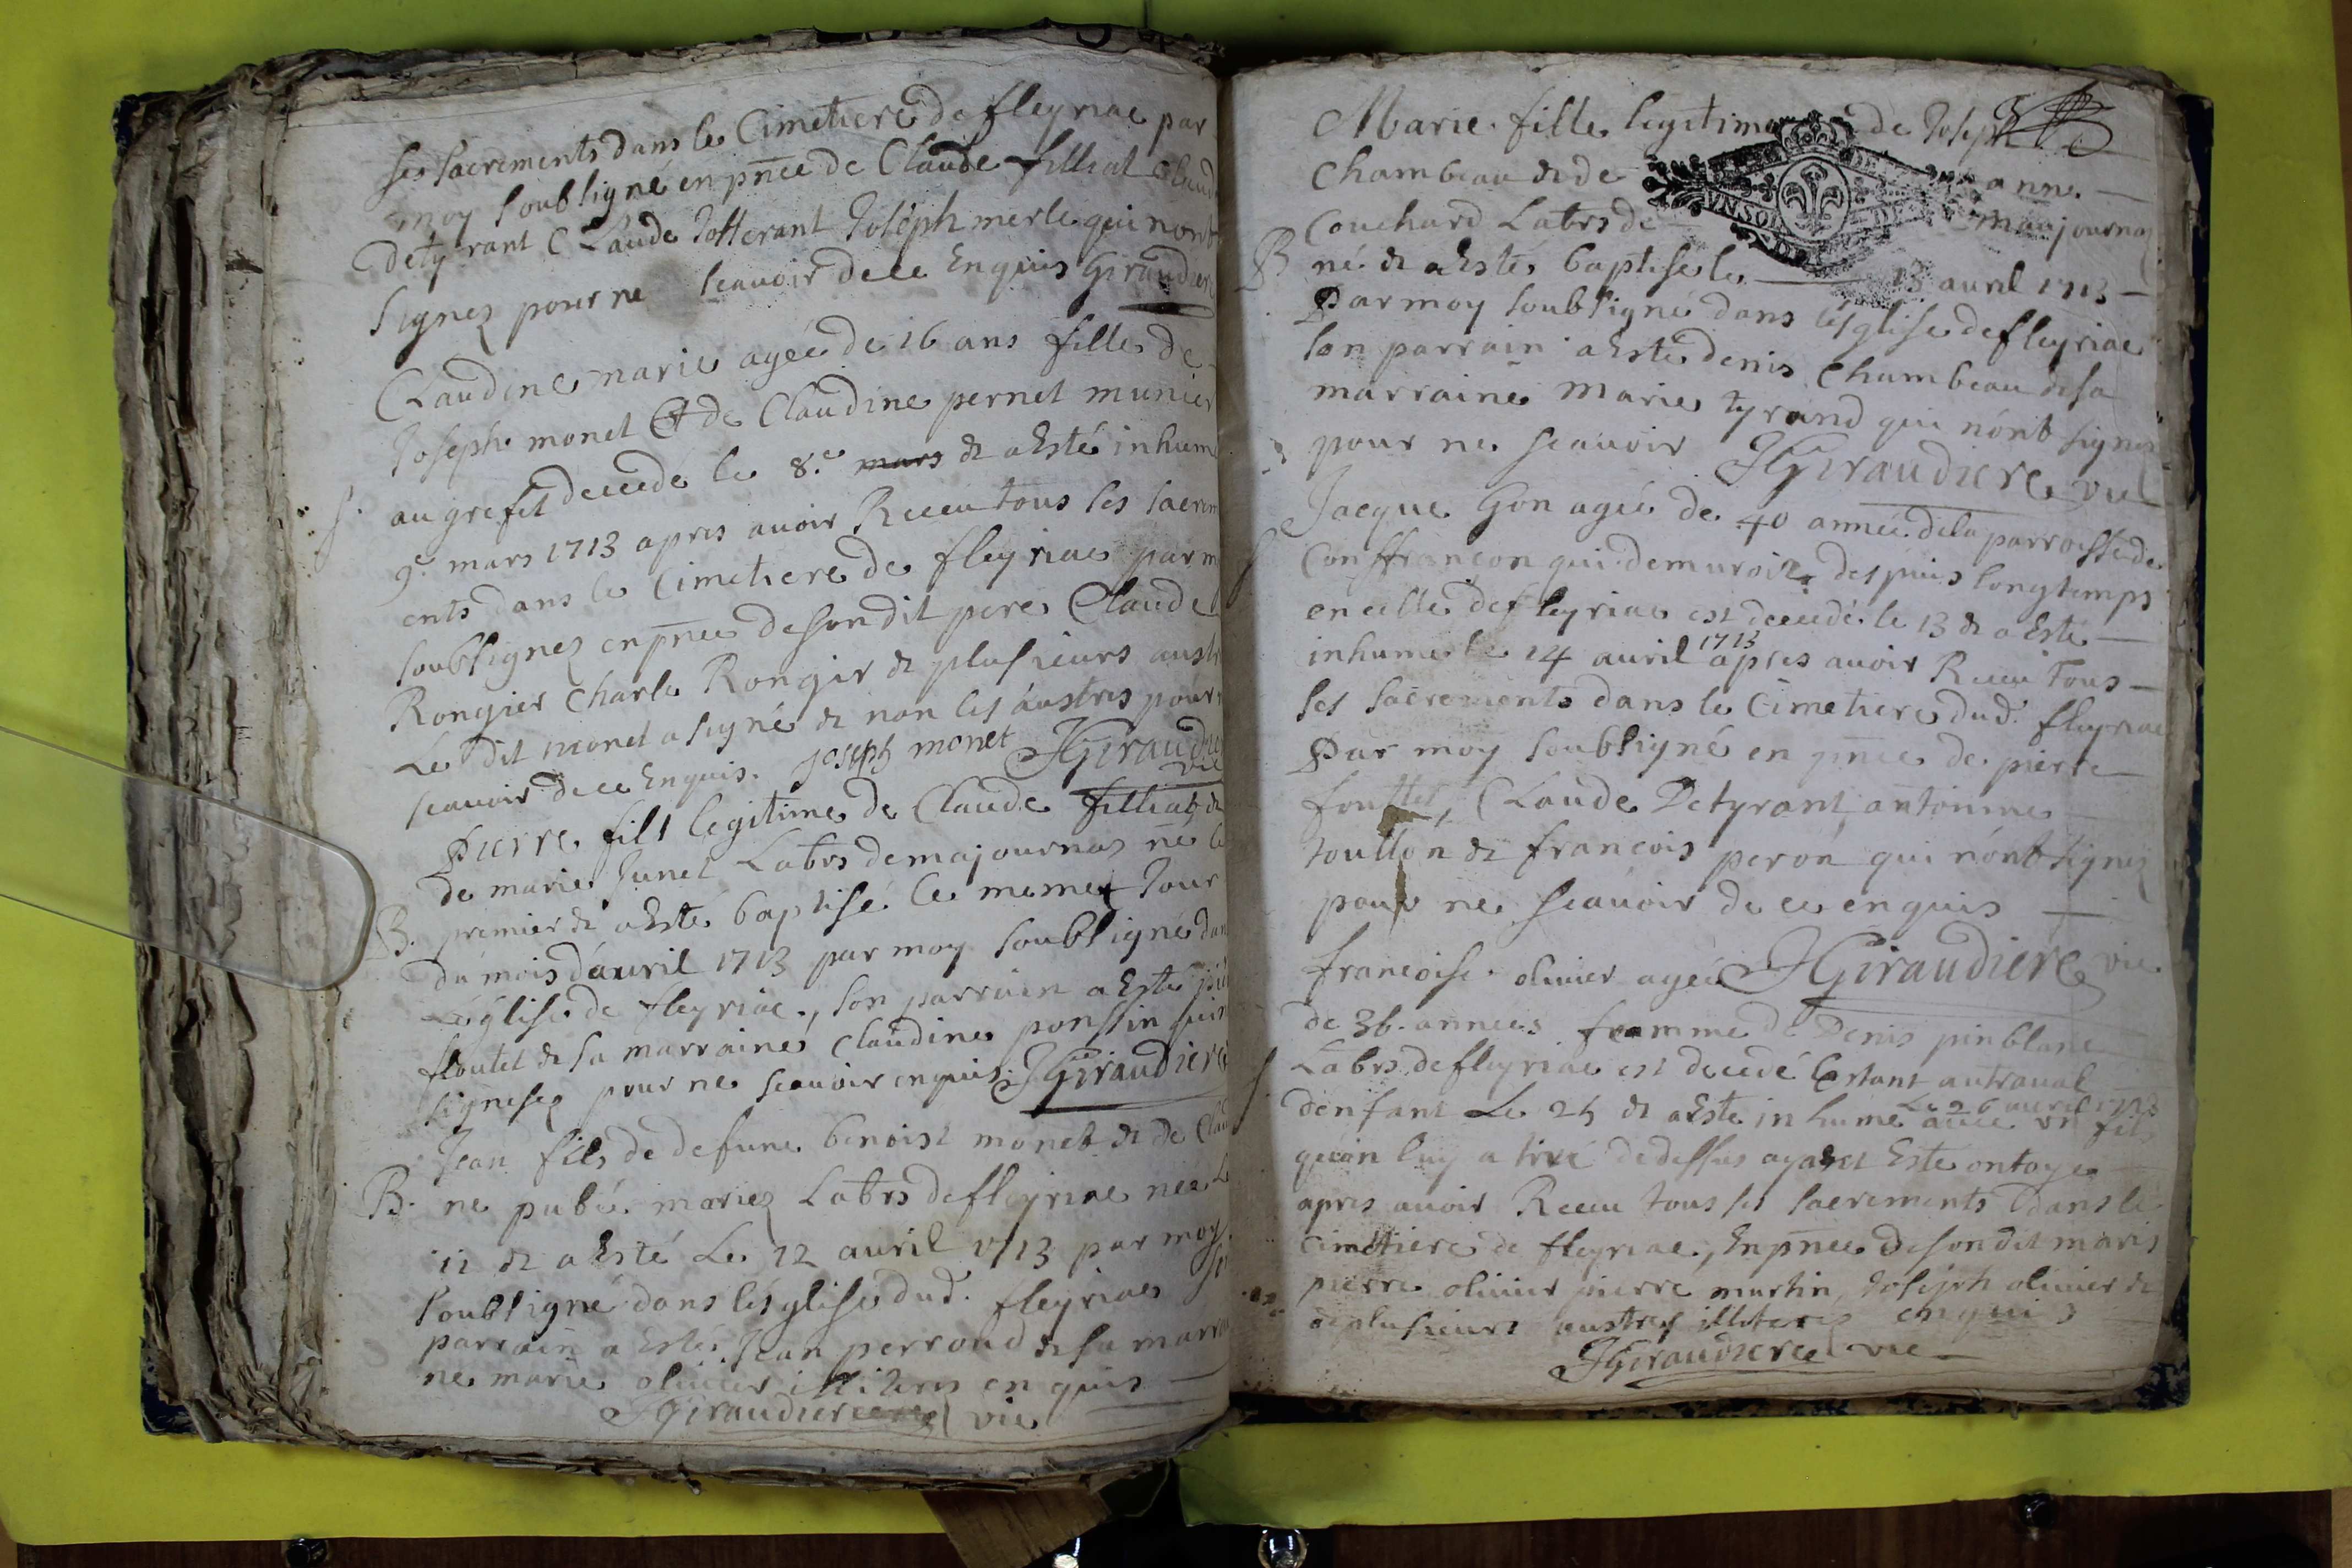 ses sacrements dans le Cimetiere de fleyriac par
moy soubsigné en pnce de Claude filliat Claude
Detyrant Claude Jotterant Joseph merle qui nont
signez pour ne scauoir de ce Enquis Giraudiere
Claudine marie agée de 16 ans fille de
Joseph monet Et de Claudine pernet munier
S. au grefet decedé le 8.e mars & a Esté inhum
9e mars 1713 apres auoir Receu tous les sacrem
ents dans le Cimetiere de fleyriac par m
soubsignez en pnce de son dit pere Claude
Rongier Charle Rongir & plusieurs austr
Le dit monet a signé & non les austres pour
scauoir de ce Enquis. joseph monet JGiraudie
vie
Pierre fils legitime de Claude filliat &
de marie Junet Labrs de majournas né le
B. premier & a Esté baptisé le meme Jour
du mois dauril 1713 par moy soubsigné dan
Léglise de fleyriac, son parrain a Esté
floutet & sa marraine Claudine ponssin
signesez pour ne scauoir enquis JGiraudiere
Jean fils de defunc benoist monet & de Clau
B. ne pubié mariez Labrs de fleyriac nee Le
11 & a Esté Le 12 auril 1713 par moy
soubsigné dans lesglise dud. fleyriac
parrain a Esté Jean perroud & sa marrai
ne marie oliuier illiteres enquis
JGiraudiere vie
Marie fille legitime de Joseph
Chambeau & de anne
Couchard Labrs de majournas
B né & a Esté baptisé le 13 auril 1713
Par moy soubsigné dans lesglise de fleyriac
son parrain a Esté denis Chambeau & sa
marraine Marie tyrand qui nont signez
pour ne scauoir JGiraudiere vie
Jacque Gon agée de 40 année de la parroisse de
S Conffrançon qui demuroit despuis longtemps
en celle de fleyriac est decedé le 13 & a Esté
inhumé le 14 auril 1713 apres auoir Receu tous
les sacrements dans le Cimetiere dud. fleyriac
Par moy soubsigné en pnce de pierre
fouttet, Claude Detyrant, antoinne
toullon & francois peron qui nont signez
pour ne scauoir de ce enquis
francoise oliuier agée JGiraudiere vie
de 36 annees framme de Denis pinblanc
S Labrs de fleyriac est decedé Estant au trauail
denfant Le 25 & a Esté inhumé Le 26 auril 1713 auec un fils
quon luy a tiré de dessus ayant Esté ontoye
apres auoir Receu tous ses sacrements dans le
Cimetiere de fleyriac, En pnce de son dit maris
pierre oliuier pierre martin, Joseph oliuier &
& plusieurs austres illiterez enquis
JGiraudiere vie